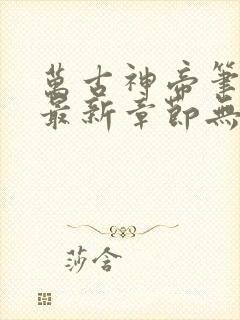 萬古神帝筆
最新章節無
莎含